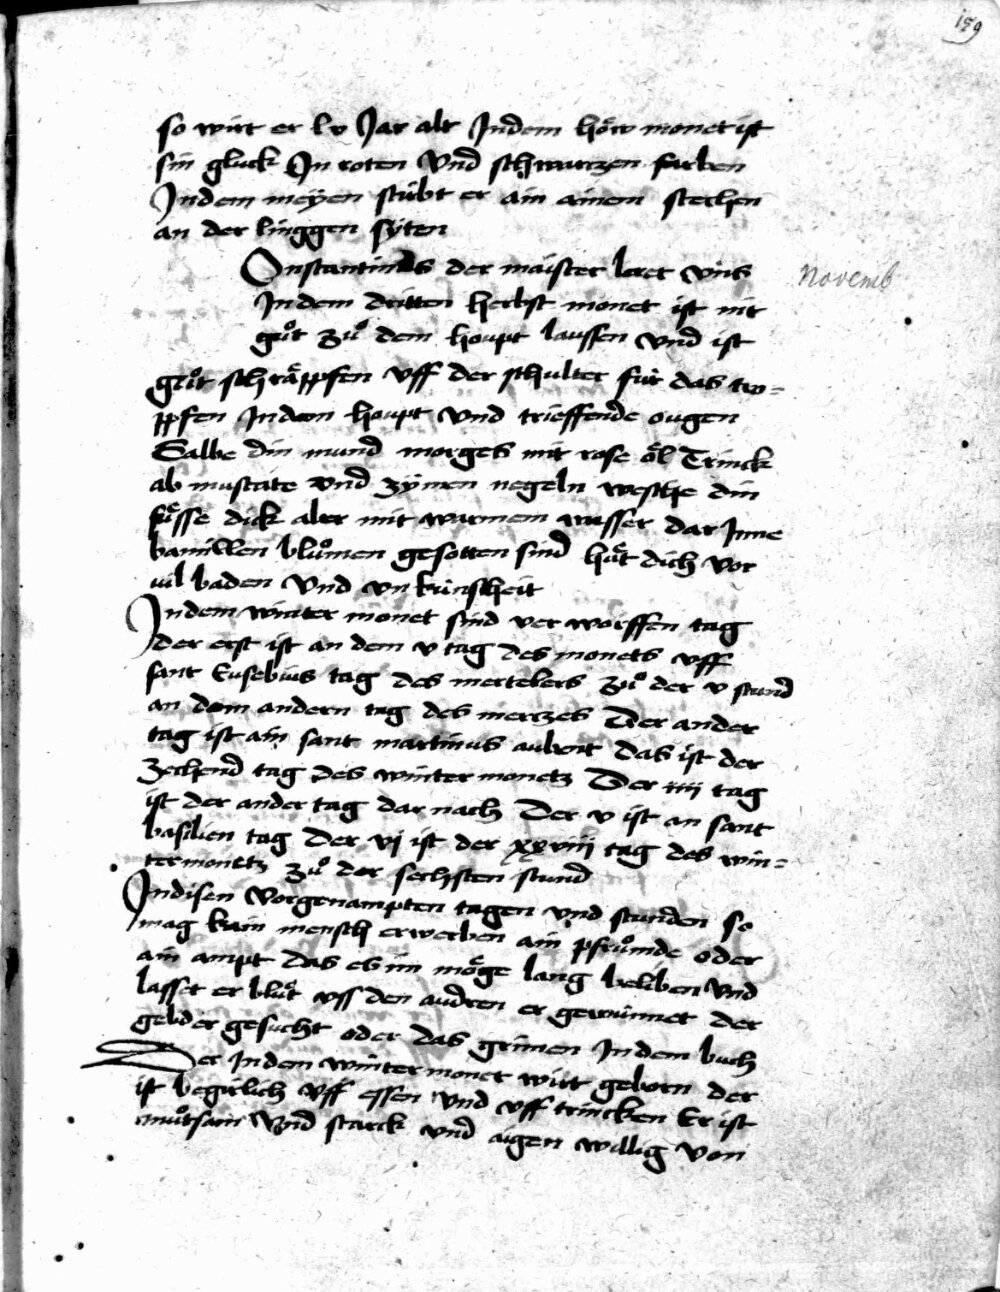 159
so wirt er lv Jar alt Jndem höw monet ist
sin gluck Jn roten Vnd schwartzen farben
Jndem meyen stirbt er ain ainem stechen
an der linggen syten
Onstantinus der maister leret vns
Novemb
Jndem dritten herbst monet ist nit
guͦt zuͦ dem houpt laussen vnd ist
guͦt schräppfen vff der schulter für das tro=
ppfen Jndem houpt vnd trieffende ougen
Salbe din mund morges mit rose öl Trinck
ab muscate vnd zymen negeln wesche din
füsse dick aber mit warmem wasser dar Jnne
bamillen bluͦmen gesotten sind hüt dich vor
vil baden Vnd vn künscheit
Jndem winter monet sind ver worffen tag
der erst ist an dem v tag des monets vff
sant Eusebius tag des mertelers zuͦ der v stund
an dem andern tag des mertzes Der ander
tag ist ain sant martinus aubent das ist der
zechend tag des winter monetz Der iiij tag
ist der ander tag dar nach Der v ist an sant
basilien tag Der vj ist der xxviij tag des win=
termonetz zuͦ der sechsten stund
Jndisen Vorgenampten tagen vnd stunden so
mag kain mensch erwerben ain pfruͦnde oder
ain ampt das es im möge lang beliben vnd
lasset er bluͦt vss den audren er gewinnet der
gelider gesucht oder das grimen Jndem buch
Der Jndem winter monet wirt geborn der
ist begirlich vff essen vnd vff trincken Er ist
muͦtsam Vnd starck vnd aigen willig von